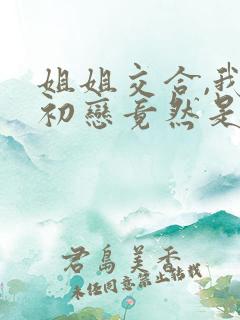 姐姐交合,我
初戀竟然是
君島美香
未任同意禁止转载